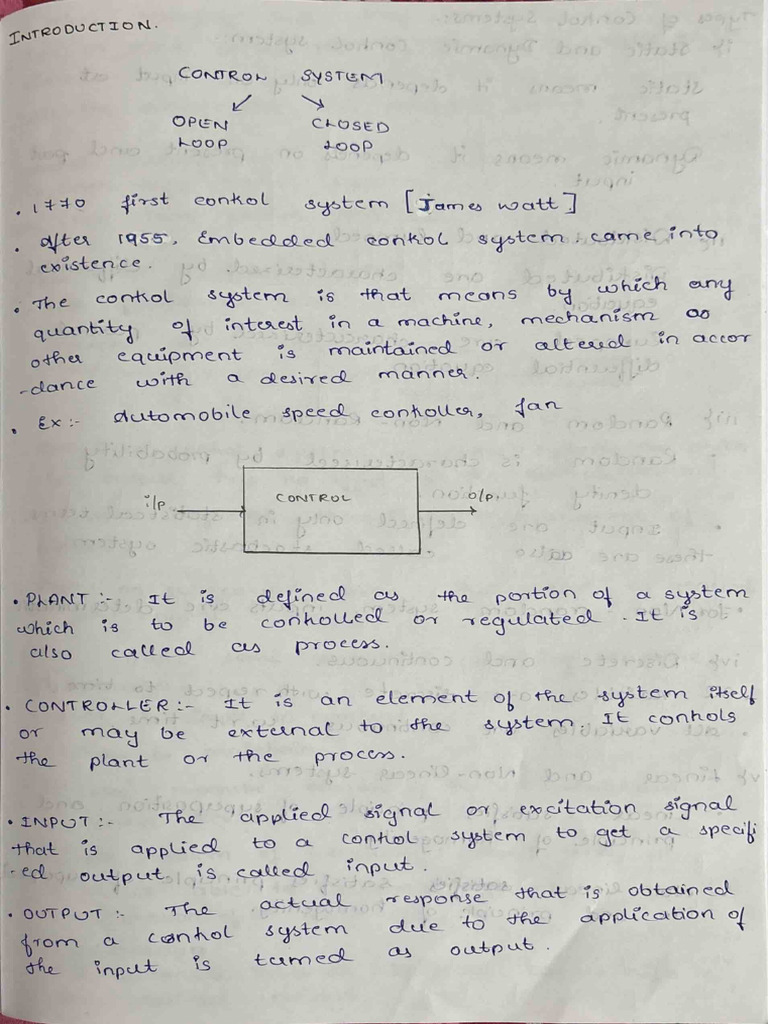 INTRODUCTION.
CONTROL SYSTEM
OPEN LOOP
CLOSED LOOP
. 1770 first control system [James Watt]
. After 1955, Embedded control system came into
existence.
. The control system is that means by which any
quantity of interest in a machine, mechanism or
other equipment is maintained or altered in accor
-dance with a desired manner.
. Ex :- Automobile speed controller, fan
i/p
CONTROL
o/p
. PLANT :- It is defined as the portion of a system
which is to be controlled or regulated. It is
also called as process.
. CONTROLLER :- It is an element of the system itself
or may be external to the system. It controls
the plant or the process.
. INPUT :- The applied signal or excitation signal
that is applied to a control system to get a specifi
-ed output is called input.
. OUTPUT :- The actual response that is obtained
from a control system due to the application of
the input is turned as output.